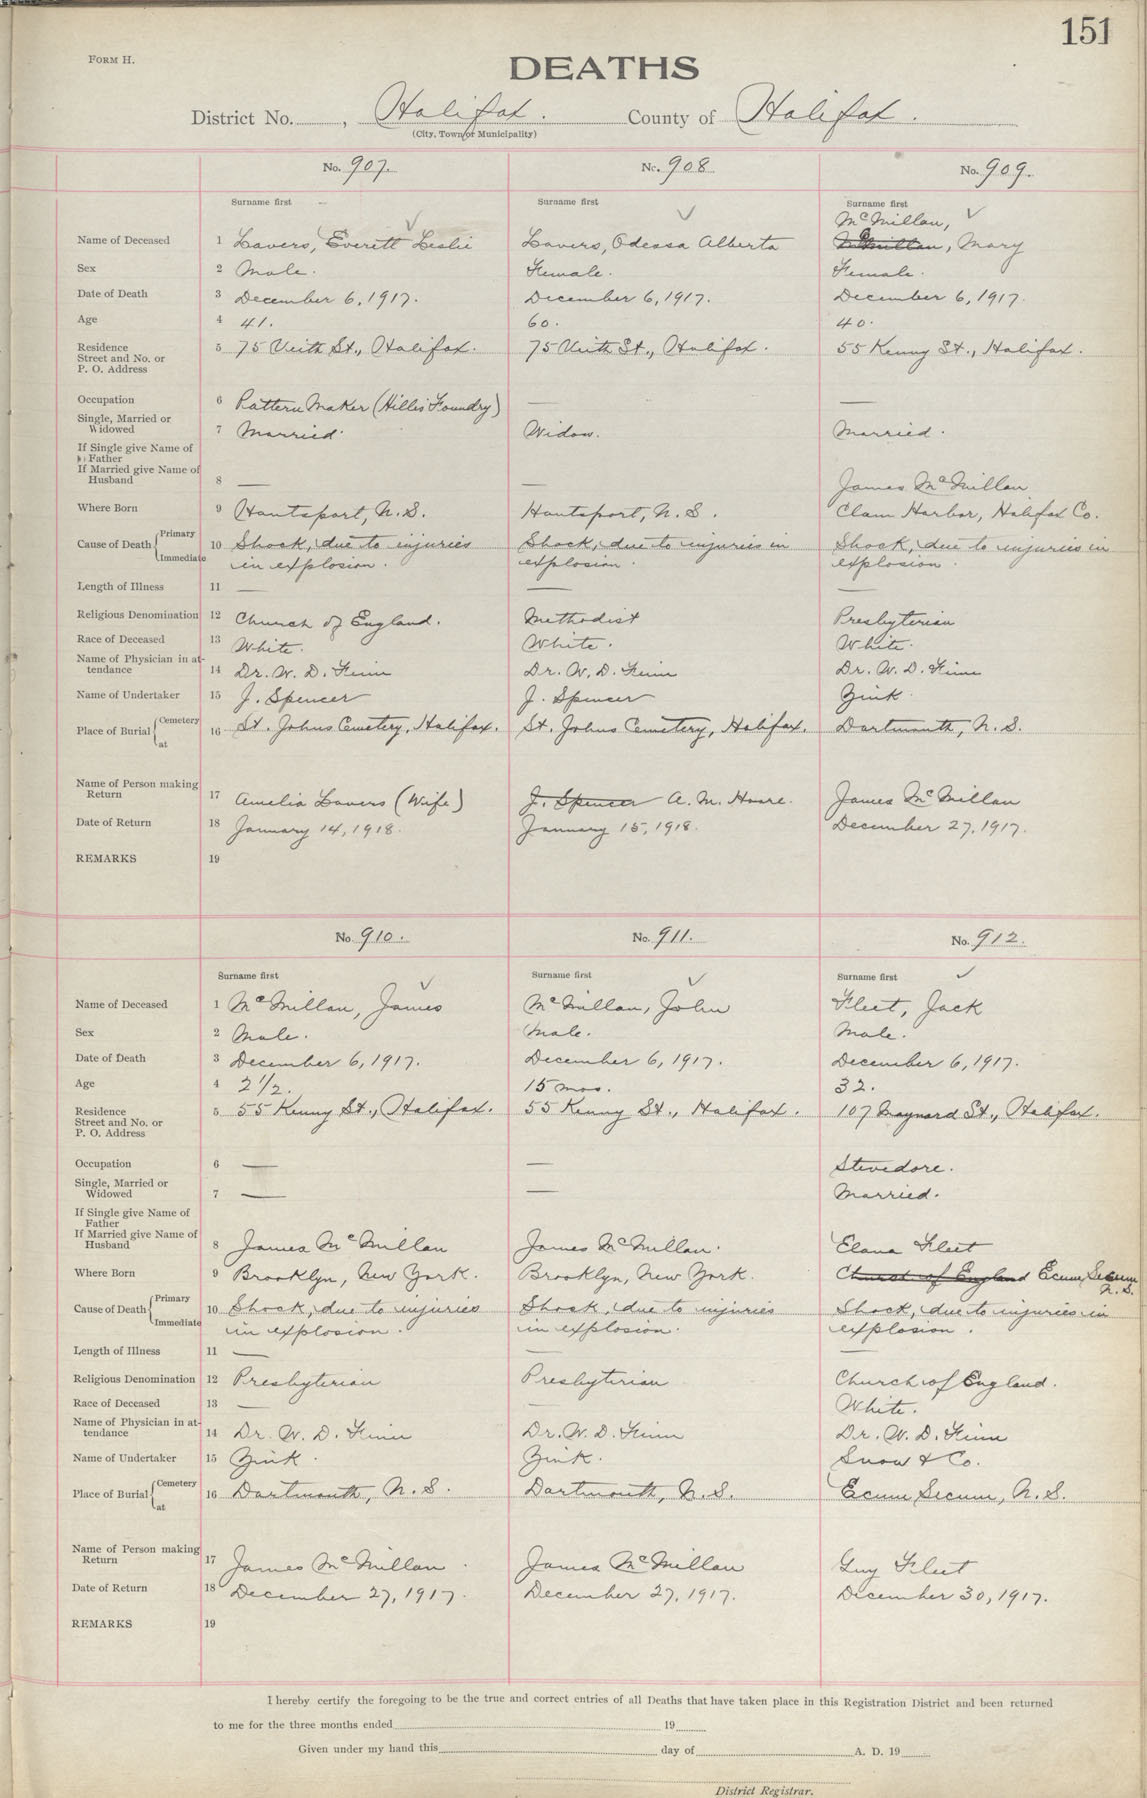 151
FORM H.
DEATHS
District No. , Halifax. County of Halifax.
(City, Town or Municipality)
No. 907. No. 908 No. 909.
Surname first Surname first Surname first
McMillan,
Name of Deceased 1 Lavers, Everett Leslie Lavers, Odessa Alberta McMillan, Mary
Sex 2 Male. Female. Female.
Date of Death 3 December 6, 1917. December 6, 1917. December 6, 1917.
Age 4 41. 60. 40.
Residence 5 75 Veith St., Halifax. 75 Veith St., Halifax. 55 Kenny St., Halifax.
Street and No. or
P. O. Address
Occupation 6 Pattern Maker (Hillis Foundry) — —
Single, Married or
Widowed 7 Married. Widow. Married.
If Single give Name of
Father
If Married give Name of
Husband 8 — — James McMillan
Where Born 9 Hantsport, N.S. Hantsport, N.S. Clam Harbor, Halifax Co.
Primary
Cause of Death 10 Shock, due to injuries Shock, due to injuries in Shock, due to injuries in
Immediate in explosion. explosion. explosion.
Length of Illness 11 — — —
Religious Denomination 12 Church of England. Methodist Presbyterian
Race of Deceased 13 White. White. White.
Name of Physician in at-
tendance 14 Dr. W. D. Finn Dr. W. D. Finn Dr. W. D. Finn
Name of Undertaker 15 J. Spencer J. Spencer Zink
Cemetery
Place of Burial 16 St. Johns Cemetery, Halifax. St. Johns Cemetery, Halifax. Dartmouth, N.S.
at
Name of Person making
Return 17 Amelia Lavers (Wife) J. Spencer A. M. Hoare. James McMillan
Date of Return 18 January 14, 1918. January 15, 1918. December 27, 1917.
REMARKS 19
No. 910. No. 911. No. 912.
Surname first Surname first Surname first
Name of Deceased 1 McMillan, James McMillan, John Fleet, Jack
Sex 2 Male. Male. Male.
Date of Death 3 December 6, 1917. December 6, 1917. December 6, 1917.
Age 4 2 1/2. 15 mos. 32.
Residence 5 55 Kenny St., Halifax. 55 Kenny St., Halifax. 107 Maynard St., Halifax.
Street and No. or
P. O. Address
Occupation 6 — — Stevedore.
Single, Married or
Widowed 7 — — Married.
If Single give Name of
Father
If Married give Name of
Husband 8 James McMillan James McMillan. Elana Fleet
Where Born 9 Brooklyn, New York. Brooklyn, New York. Church of England Ecum Secum
N.S.
Primary
Cause of Death 10 Shock, due to injuries Shock, due to injuries Shock, due to injuries in
Immediate in explosion. in explosion. explosion.
Length of Illness 11 — — —
Religious Denomination 12 Presbyterian Presbyterian Church of England.
Race of Deceased 13 — — White.
Name of Physician in at-
tendance 14 Dr. W. D. Finn Dr. W. D. Finn Dr. W. D. Finn
Name of Undertaker 15 Zink. Zink. Snow & Co.
Cemetery
Place of Burial 16 Dartmouth, N.S. Dartmouth, N.S. Ecum Secum, N.S.
at
Name of Person making
Return 17 James McMillan James McMillan Guy Fleet
Date of Return 18 December 27, 1917. December 27, 1917. December 30, 1917.
REMARKS 19
I hereby certify the foregoing to be the true and correct entries of all Deaths that have taken place in this Registration District and been returned
to me for the three months ended 19
Given under my hand this day of A. D. 19
District Registrar.